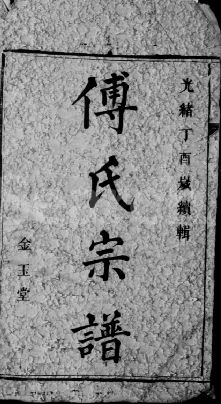 光緒丁酉歲續輯
傅氏宗譜
金玉堂